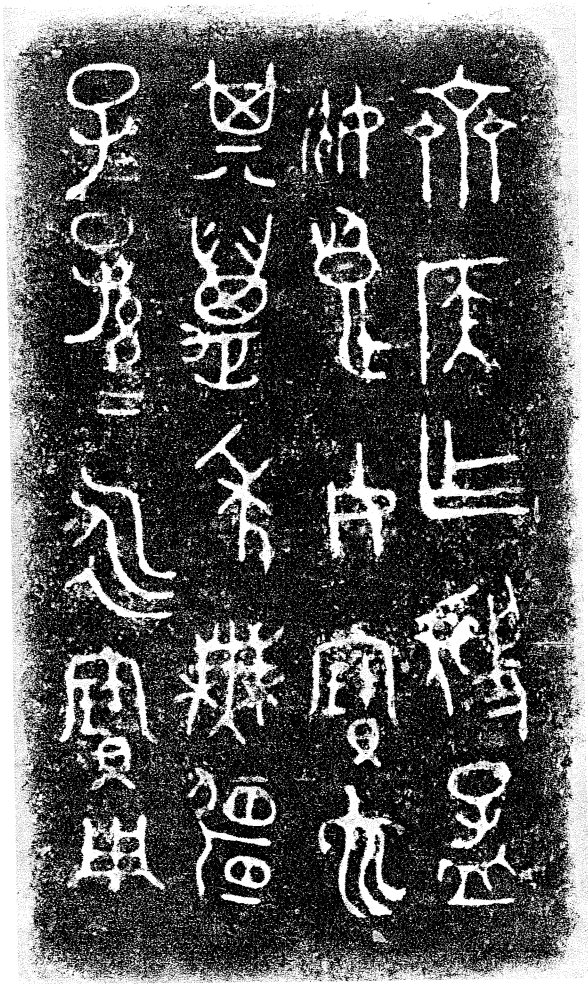 齊侯乍虢孟
姬良女寶它
其邁年無彊
子孫=永寶用